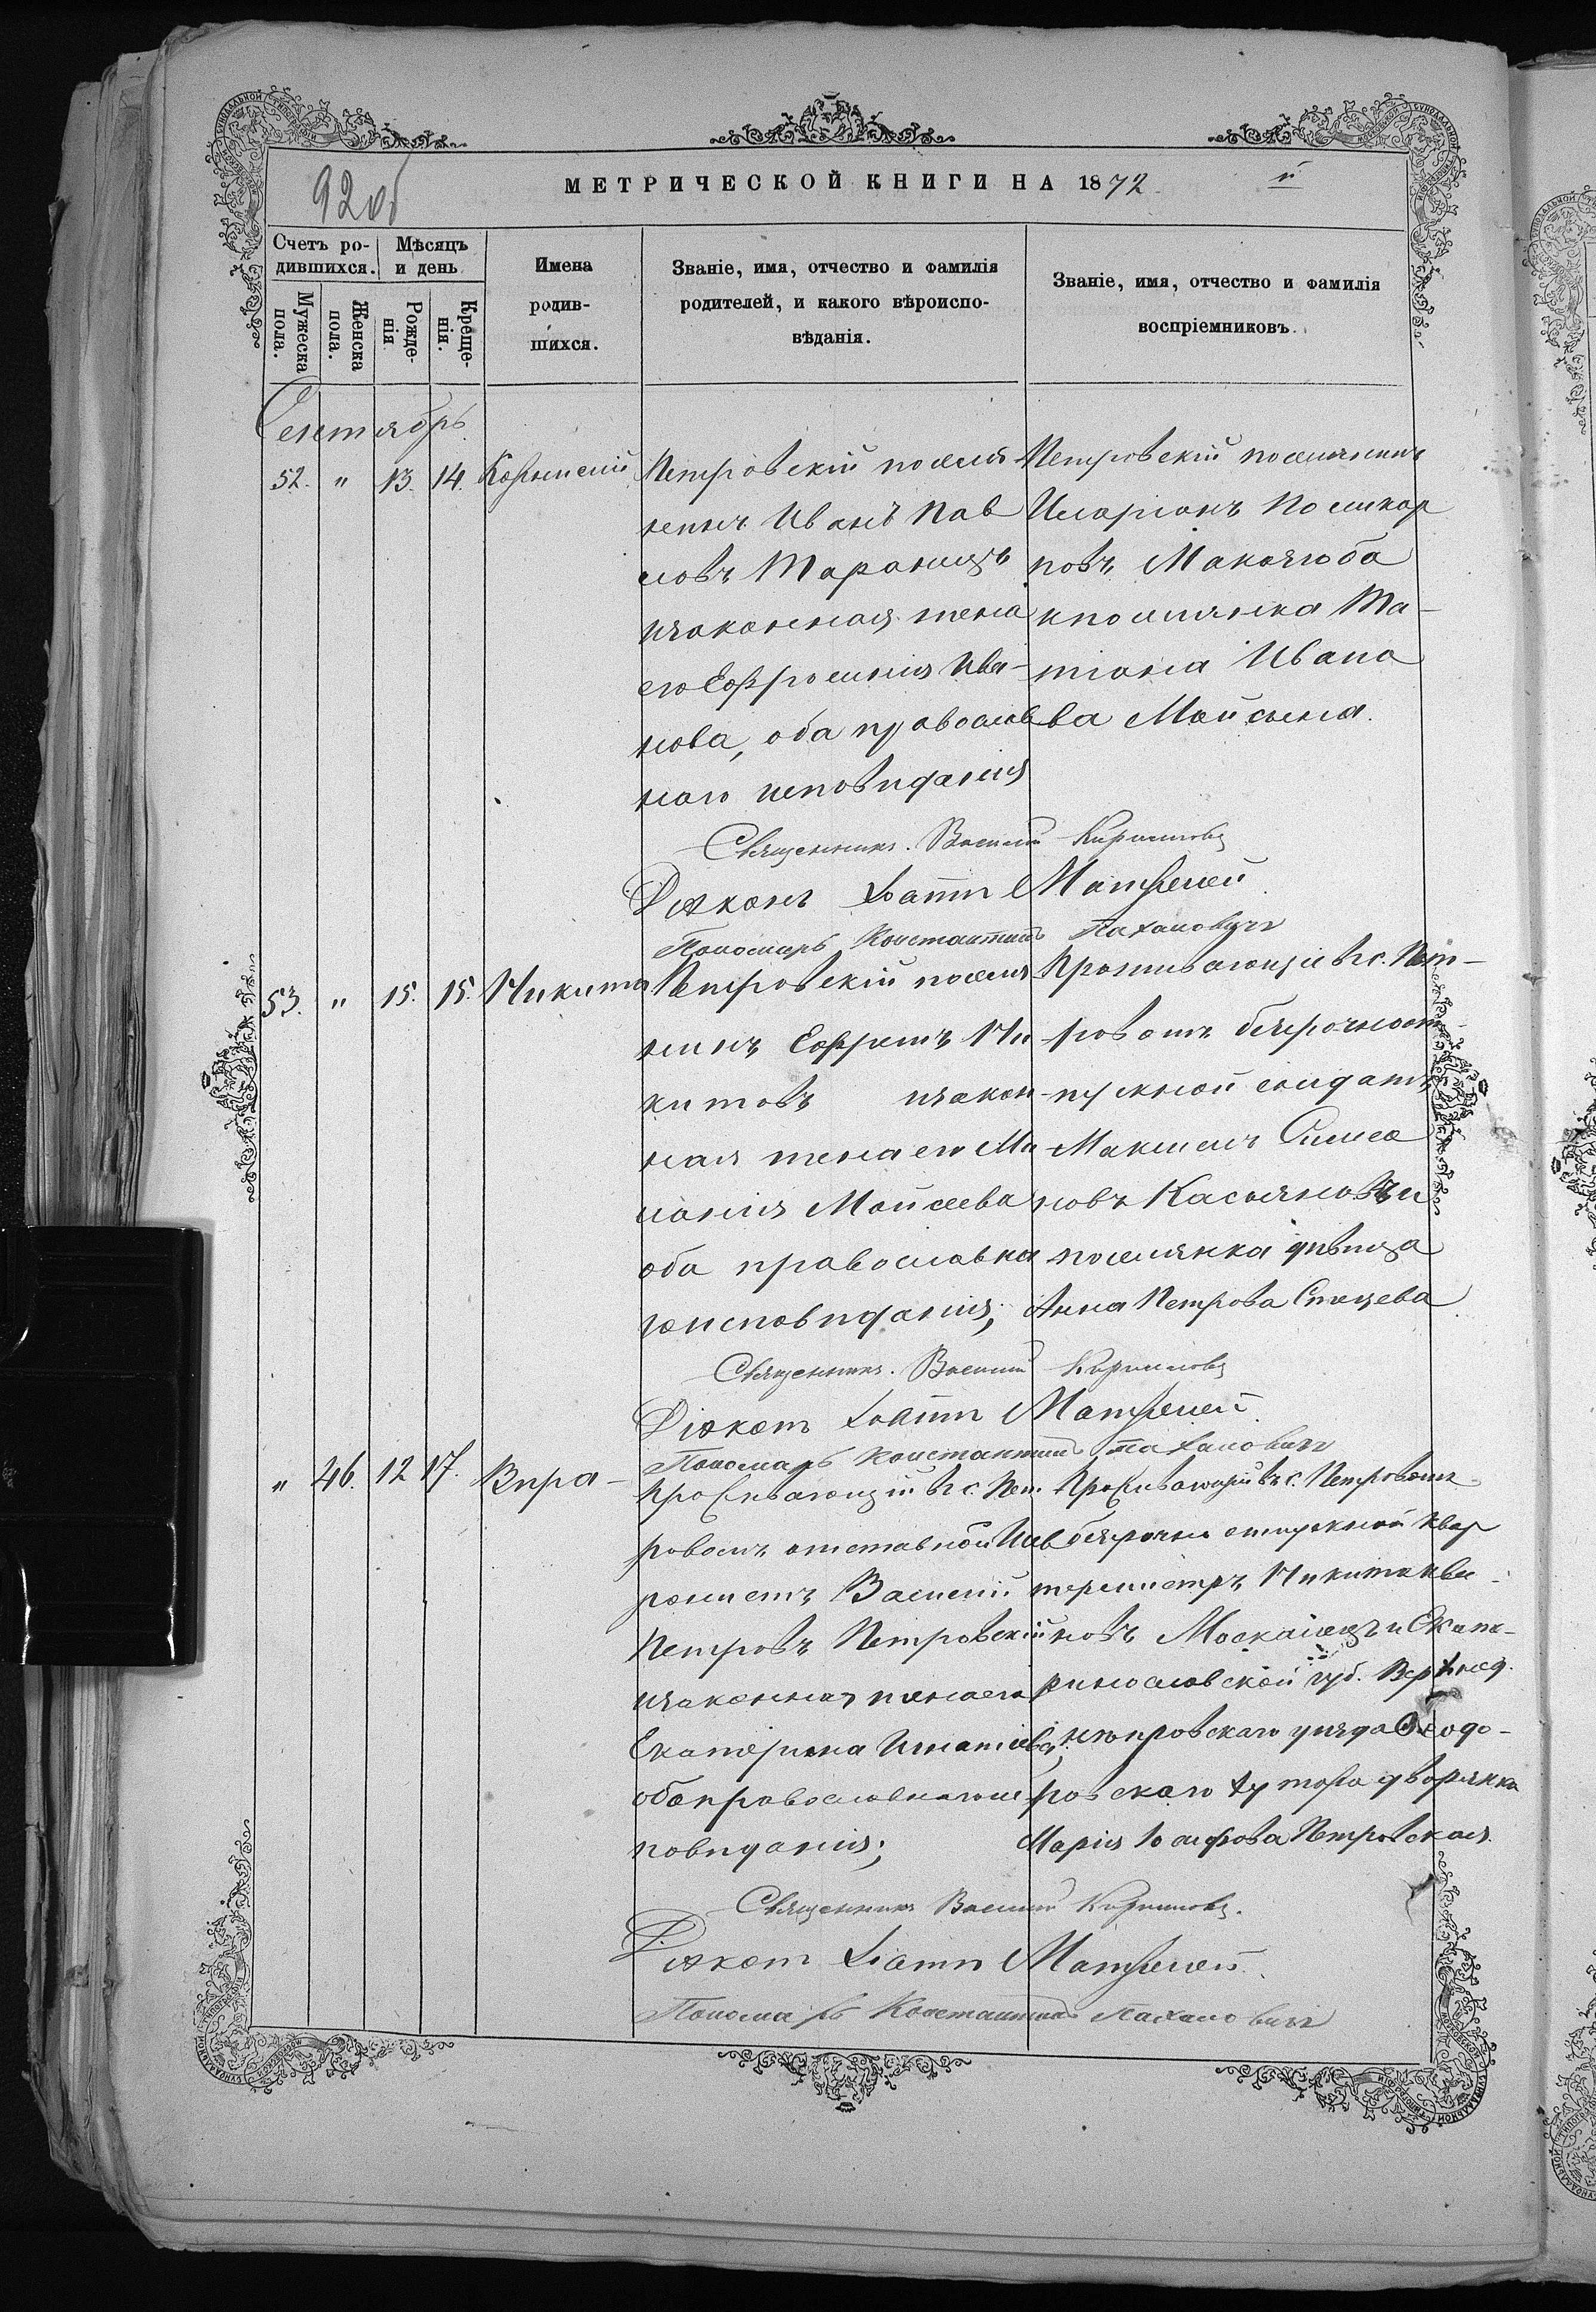 92 об
МЕТРИЧЕСКОЙ КНИГИ НА 1872
Счетъ ро-
дившихся.
Мѣсяцъ
и день
Мужеска
пола.
Женска
пола.
Рожде-
нія
Креще-
нія.
Имена
родив-
шихся.
Званіе, имя, отчество и фамилія
родителей, и какого вѣроиспо-
вѣданія.
Званіе, имя, отчество и фамилія
воспріемниковъ.
Сентябрь
52. " 13. 14. Корнилій
Петровскій поселя
нинъ Иванъ Пав
ловъ Таранецъ
изаконная жена
его Ефросинія Ива-
нова, оба православ
наго исповѣданія
Петровскій поселянинъ
Иларіонъ Поликар
повъ Макогоба
и поселянка Та-
тіана Ивано
ва Мойсеня.
Священникъ Василій Кириловъ
Діаконъ Іоаннъ Матфеией
Пономарь Константинъ Пахаловичъ
53. " 15. 15. Никита
Петровскій поселя
нинъ Ефремъ Ни
китовъ изакон
ная жена его Ме
ланія Мойсеева
оба православна
го исповѣданія;
Проживающій въ с. Пет-
ровомъ безсрочноот
пускной солдатъ
Максимъ Симео
новъ Касьяновъ и
поселянка дѣвица
Анна Петрова Спацева
Священникъ Василій Кириловъ
Діаконъ Іоаннъ Матфеией
Пономарь Константинъ Пахаловичъ
" 46. 12 17. Вѣра
Проживающій въ с. Пет
ровомъ отставной
Василій
Петровъ Петровскій
изаконная жена его
Екатерина Игнатіева,
оба православнаго ис
повѣданія;
Проживающій въ с. Петровомъ
безсрочно отпускной квар
термистръ Никита Ива
новъ Москалецъ и Екате-
ринославской губ. Верхнед
нѣпровскаго уѣзда Ѳеодо-
ровскаго хутора дворянка
Марія Іосифова Петровская.
Священникъ Василій Кириловъ.
Діаконъ Іоаннъ Матфеией
Пономарь Константинъ Пахаловичъ